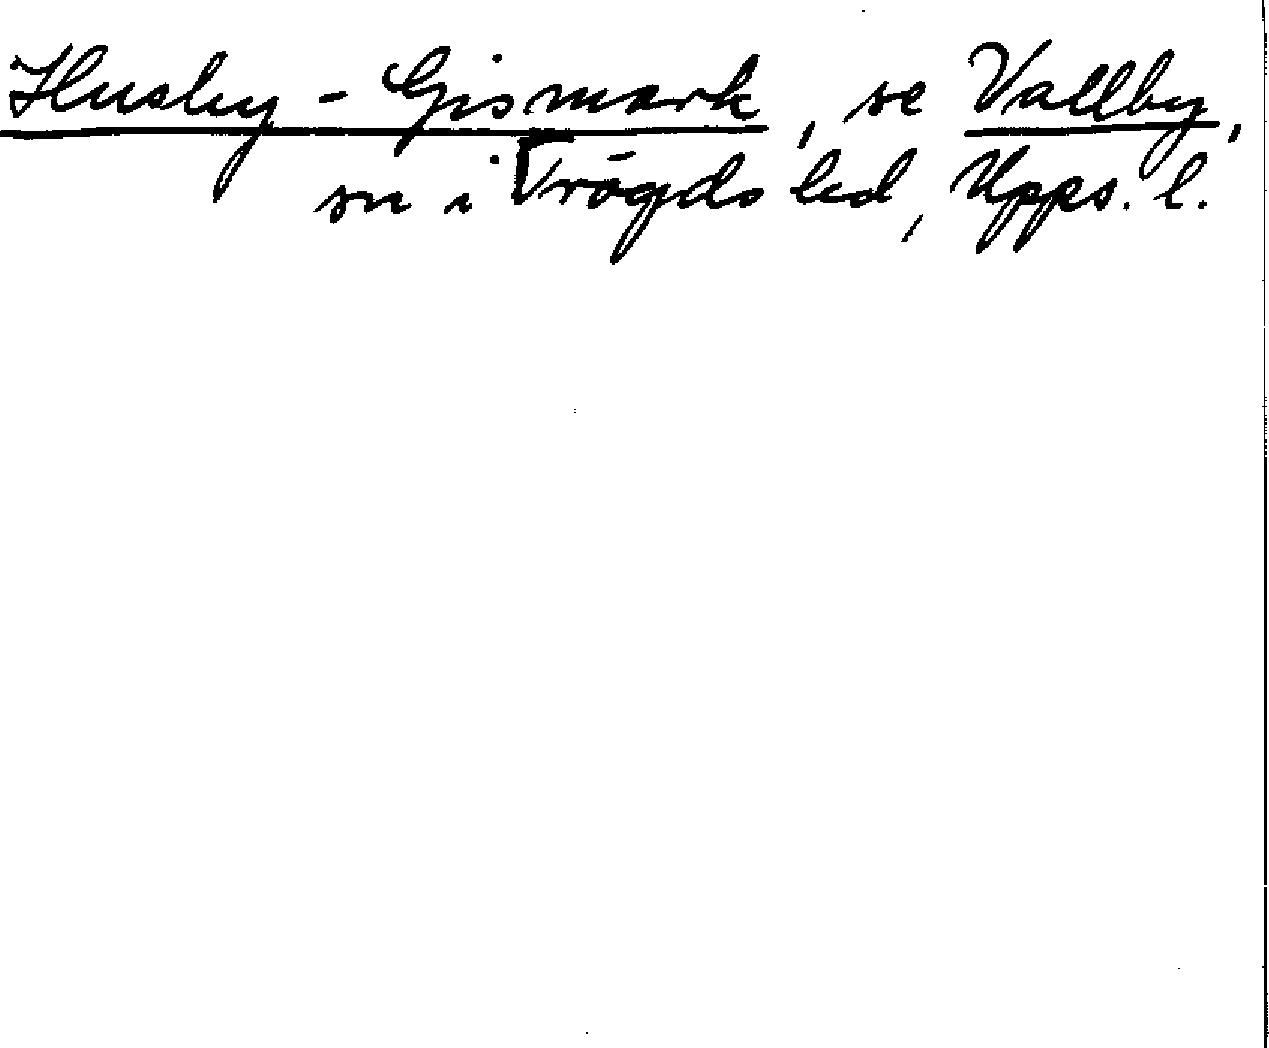 Husby-Gismark, se Vallby,
sn i Trögds hd, Upps. l.